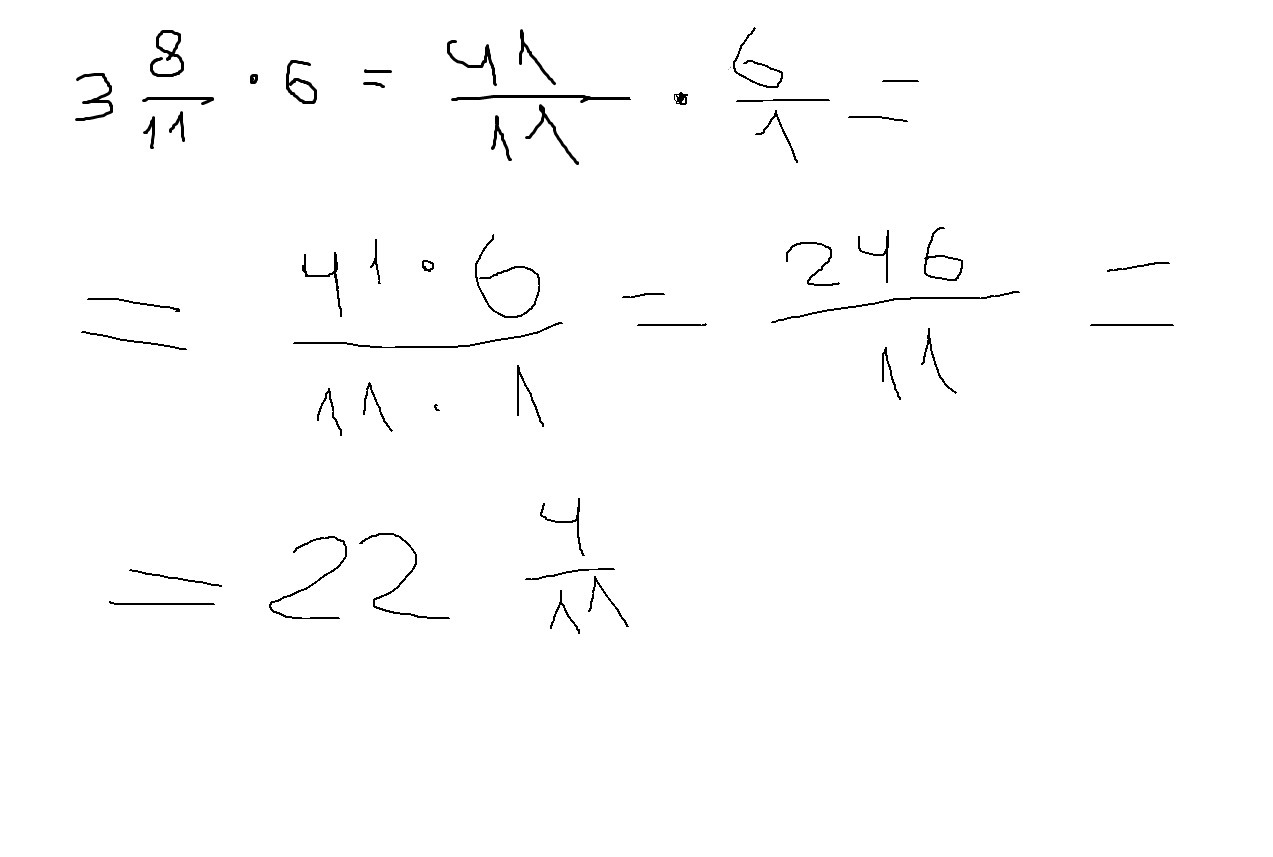 3 8/11 · 6 = 41/11 · 6/1 =
= 41 · 6/11 · 1 = 246/11 =
= 22 4/11